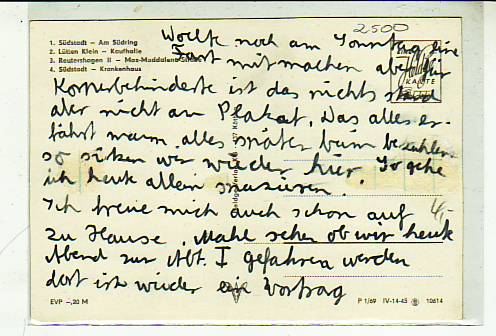 2500
1. Südstadt – Am Südring
2. Lütten Klein – Kaufhalle
3. Reutershagen II – Max-Maddalena-Straße
4. Südstadt – Krankenhaus
Wollte noch am Sonntag eine
Fart mitmachen aber für
Körperbehinderte ist das nichts stand
aber nicht am Plakat. Das alles er-
fährt mann alles später beim bezahlen
so sitzen wir wieder hier. So gehe
ich heute allein spazieren.
Ich freue mich auch schon auf
zu Hause. Mahl sehen ob wir heute
Abend zur Abt. I gefahren werden
dort ist wieder ein Vortrag
4,-
KARTE
EVP –,20 M
P 1/69 IV-14-45 10614